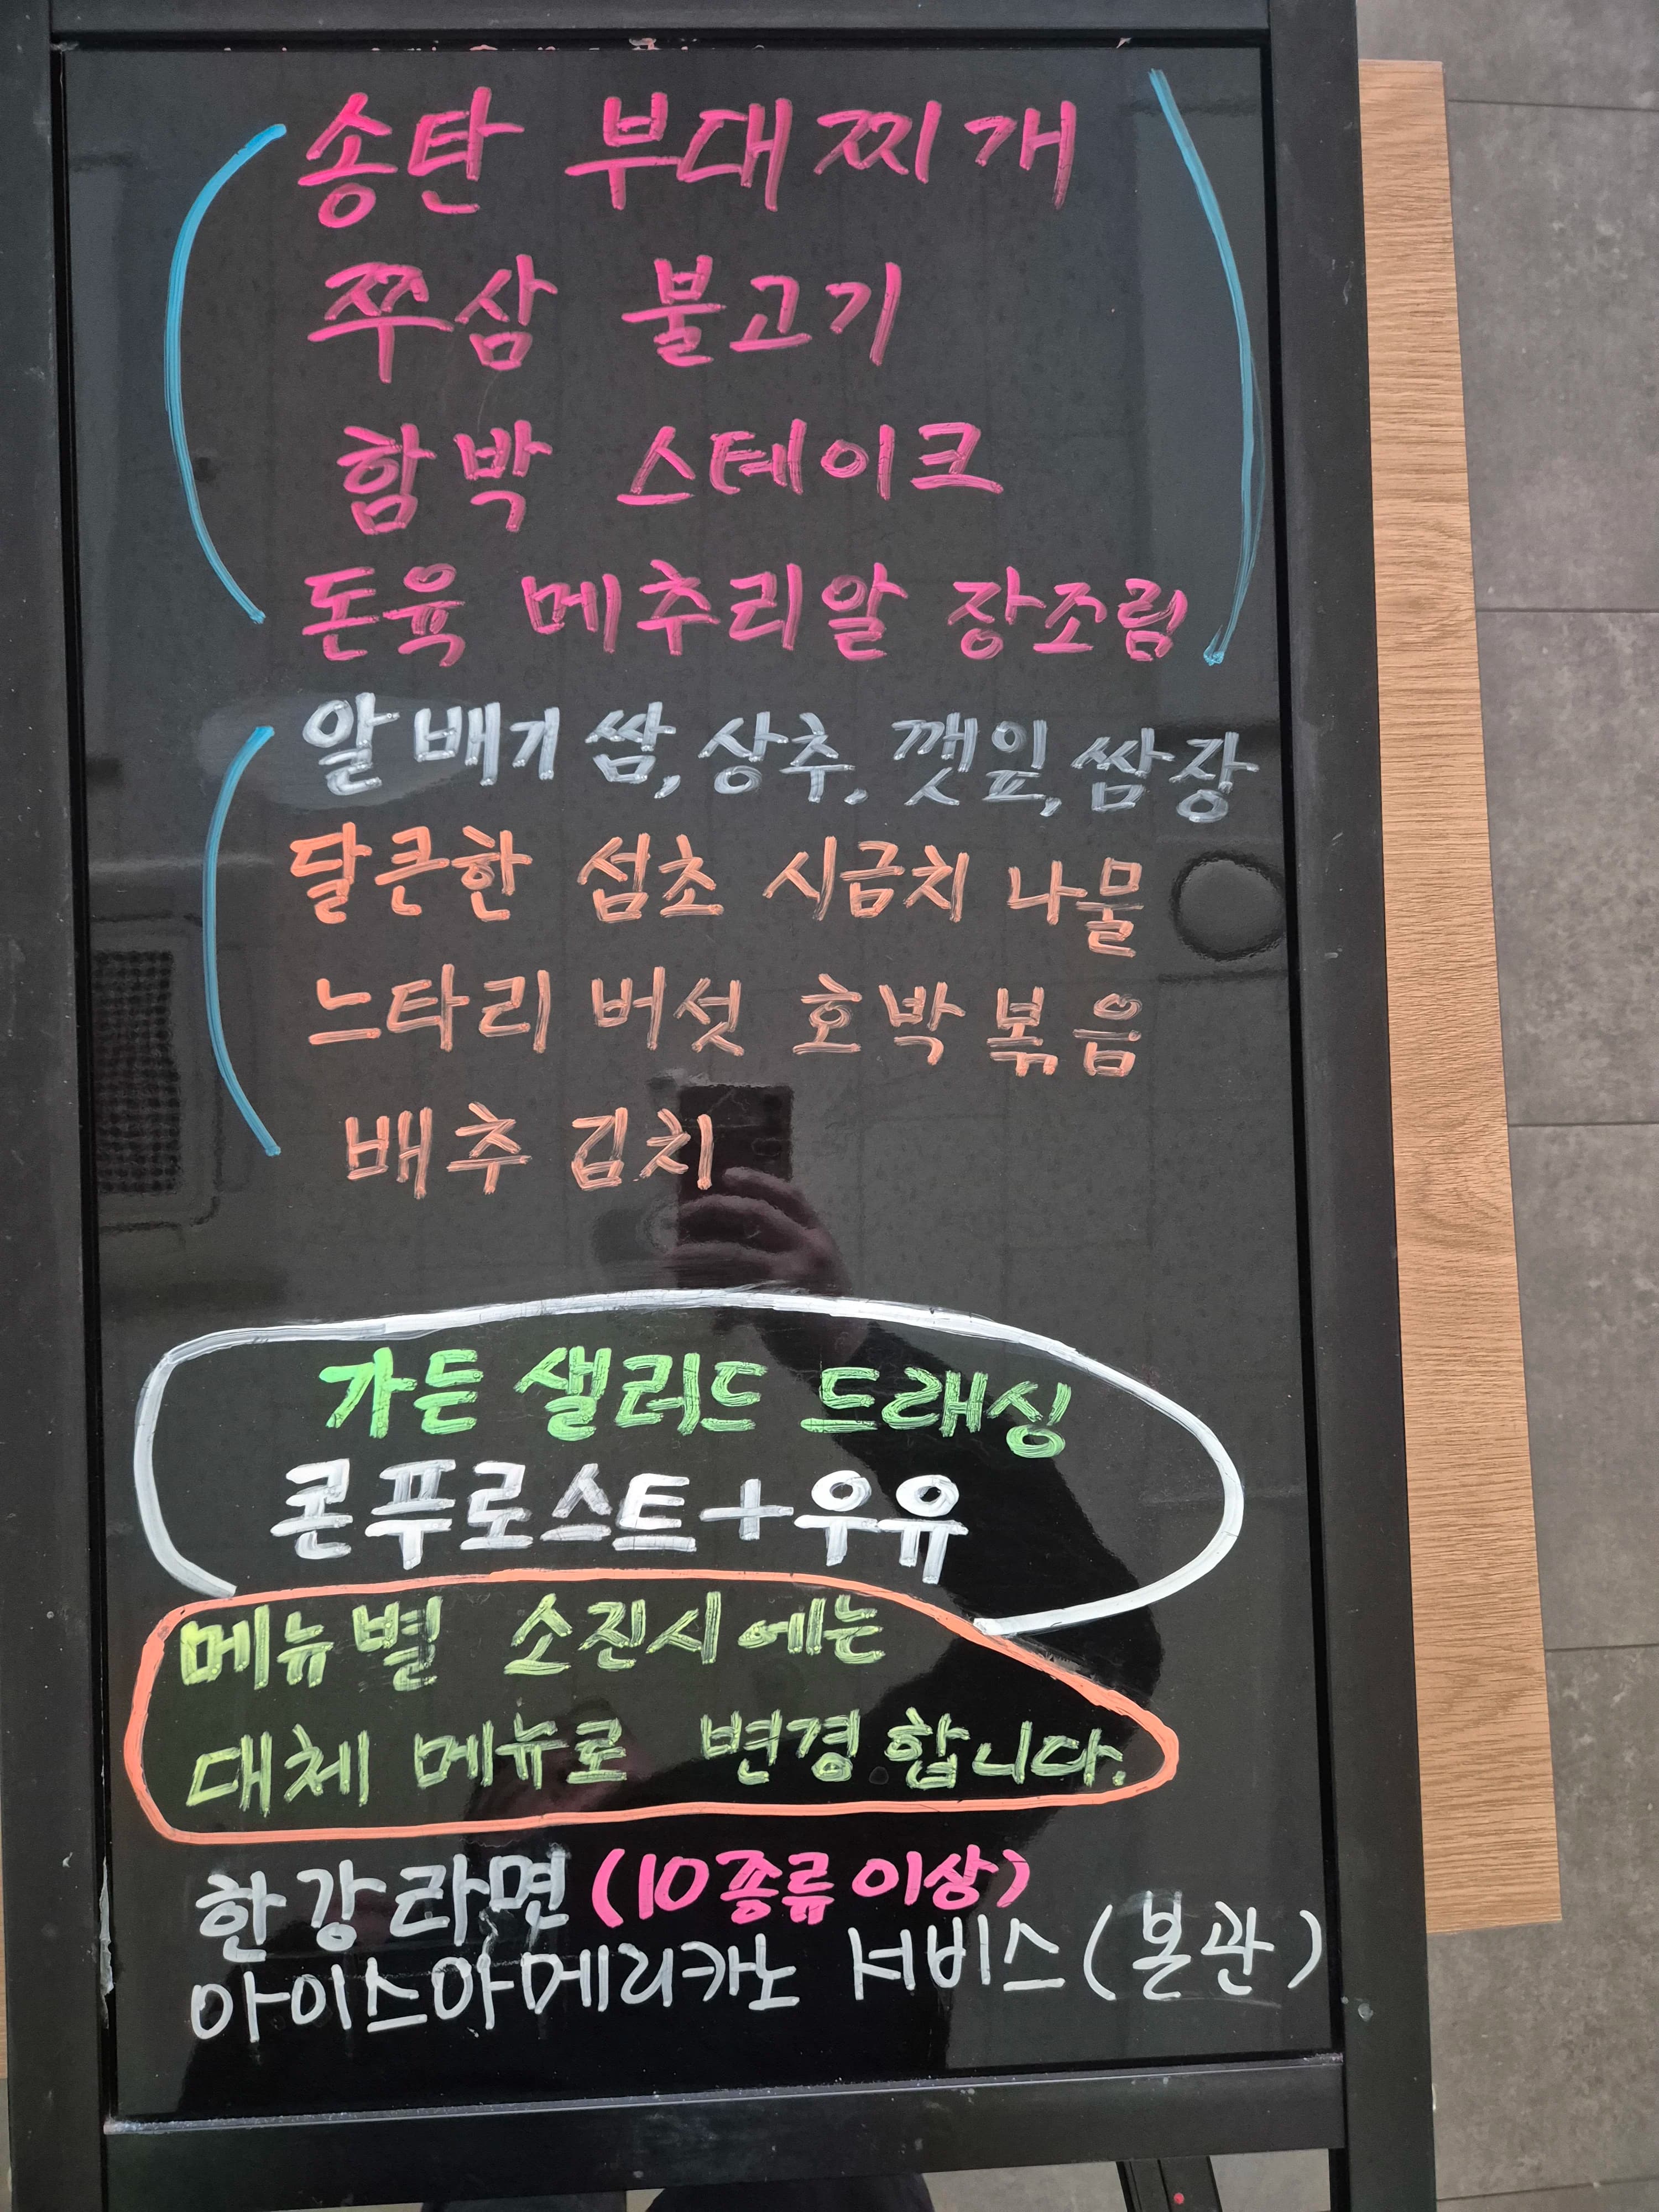 송탄 부대찌개
쭈삼 불고기
함박 스테이크
돈육 메추리알 장조림
알배기쌈, 상추, 깻잎, 쌈장
달큰한 섬초 시금치 나물
느타리 버섯 호박볶음
배추 김치
가든 샐러드 드래싱
콘푸로스트+우유
메뉴별 소진시에는
대체 메뉴로 변경합니다.
한강라면 (10종류이상)
아이스아메리카노 서비스(본관)